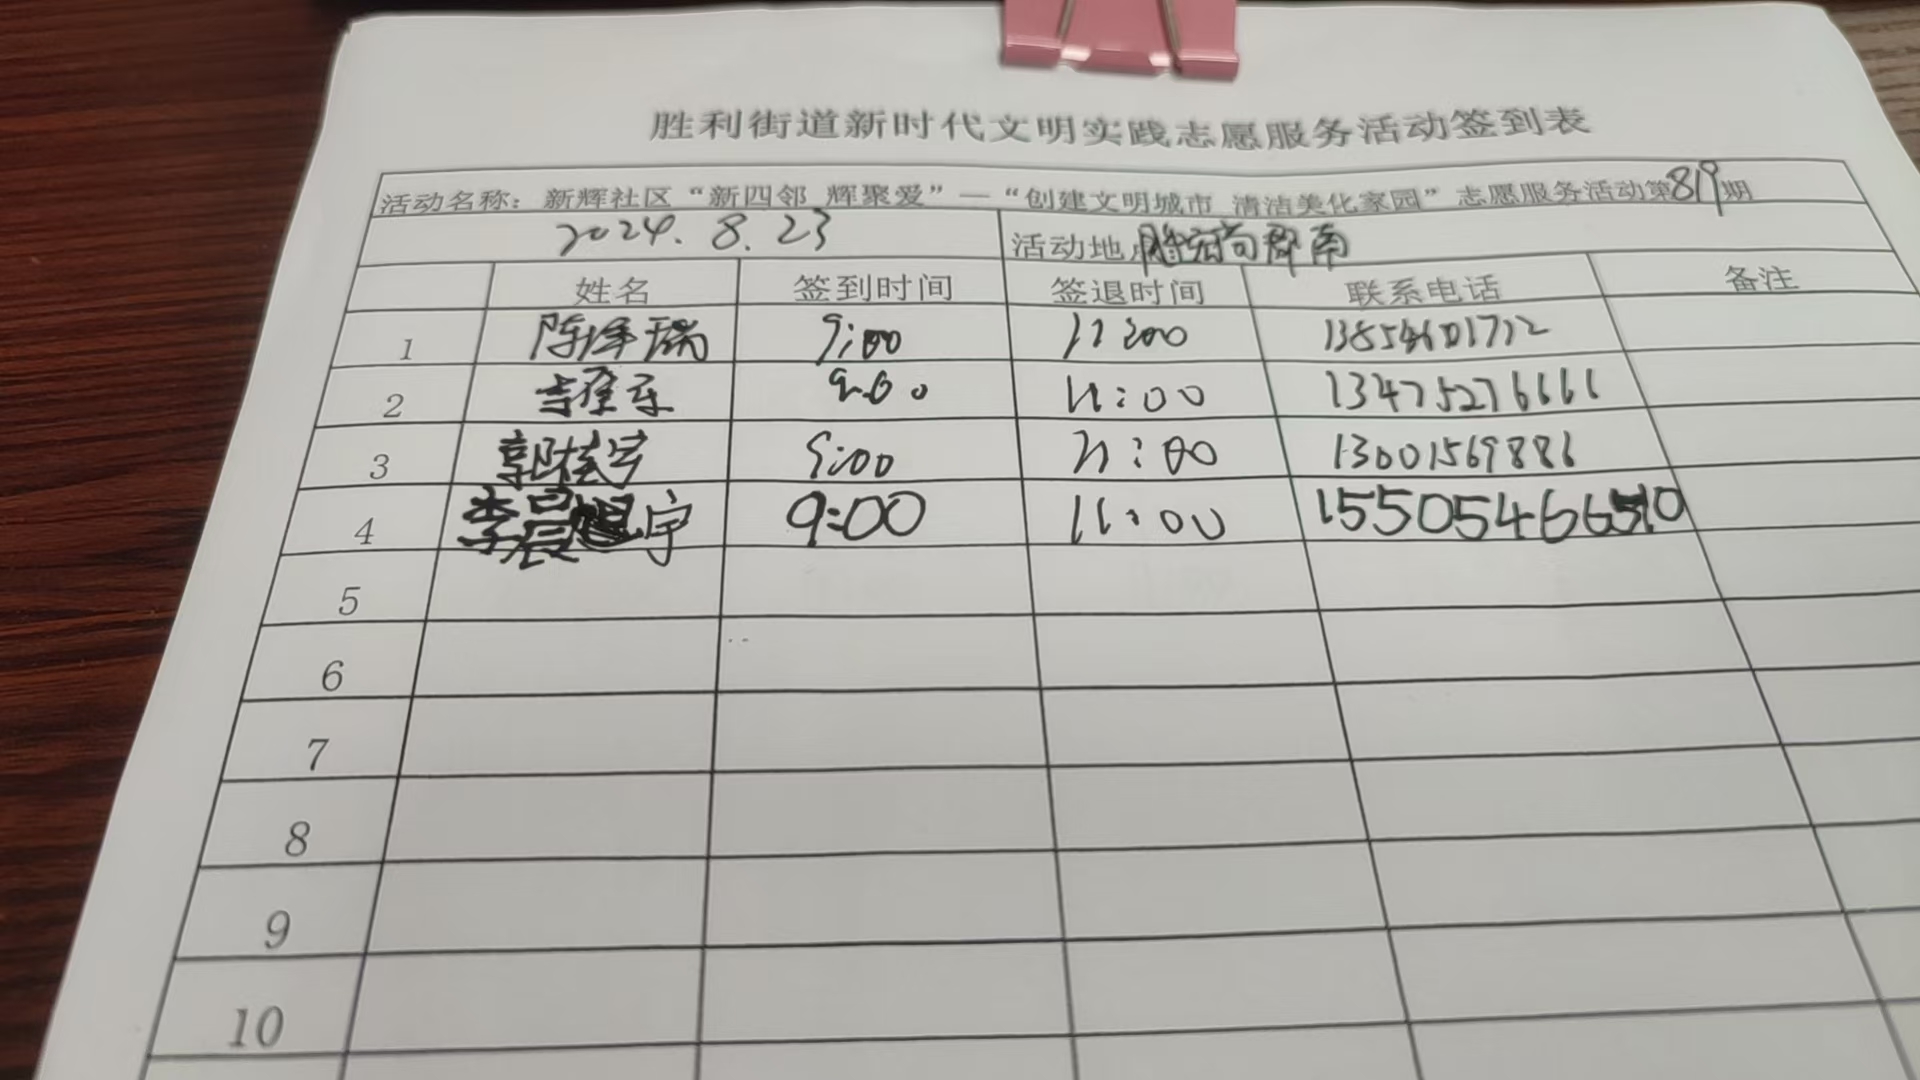 胜利街道新时代文明实践志愿服务活动签到表
活动名称：新辉社区“新四邻 辉聚爱”—“创建文明城市 清洁美化家园”志愿服务活动第819期
2024.8.23 活动地 南
姓名 签到时间 签退时间 联系电话 备注
1 陈泽瑞 9:00 11:00 13854601712
2 9:00 11:00 13475276666
3 郭桂宇 9:00 11:00 13001569886
4 李晨宇 9:00 11:00 15505466510
5
6
7
8
9
10